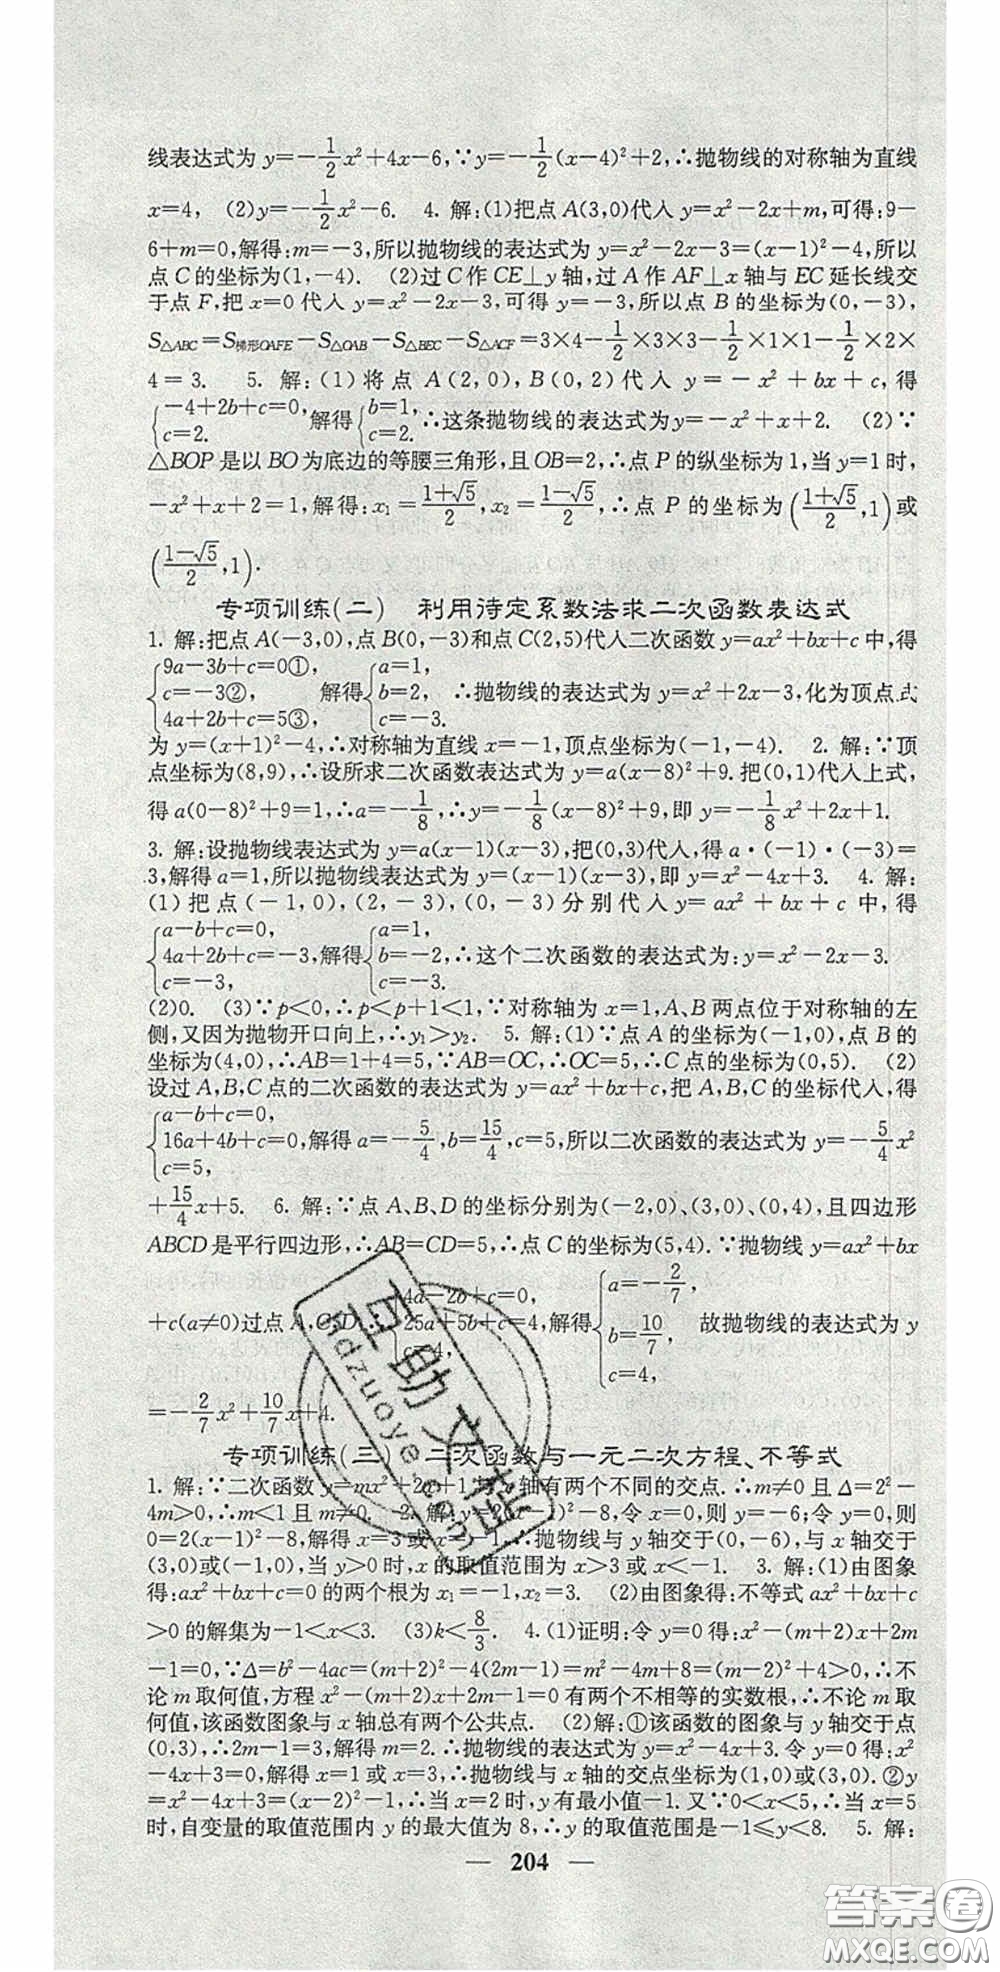 线表达式为 y=-1/2x²+4x-6,∵y=-1/2(x-4)²+2,∴抛物线的对称轴为直线
x=4, (2)y=-1/2x²-6. 4. 解:(1)把点A(3,0)代入 y=x²-2x+m,可得:9-
6+m=0,解得:m=-3,所以抛物线的表达式为 y=x²-2x-3=(x-1)²-4,所以
点 C 的坐标为(1,-4). (2)过 C 作 CE⊥y 轴,过 A 作 AF⊥x 轴与 EC 延长线交
于点 F,把 x=0 代入 y=x²-2x-3,可得 y=-3,所以点 B 的坐标为(0,-3),
S△ABC=S梯形OAFE-S△OAB-S△BEC-S△ACF=3×4-1/2×3×3-1/2×1×1-1/2×2×
4=3. 5. 解:(1)将点 A(2,0),B(0,2)代入 y=-x²+bx+c,得
{-4+2b+c=0, c=2. 解得{b=1, c=2. ∴这条抛物线的表达式为y=-x²+x+2. (2)∵
△BOP是以BO为底边的等腰三角形,且OB=2,∴点 P的纵坐标为1,当 y=1时,
-x²+x+2=1,解得:x₁=(1+√5)/2,x₂=(1-√5)/2,∴点 P 的坐标为((1+√5)/2,1)或
((1-√5)/2,1).
专项训练(二) 利用待定系数法求二次函数表达式
1. 解:把点A(-3,0),点B(0,-3)和点C(2,5)代入二次函数 y=ax²+bx+c 中,得
{9a-3b+c=0①, c=-3②, 4a+2b+c=5③, 解得{a=1, b=2, c=-3. ∴抛物线的表达式为 y=x²+2x-3,化为顶点式
为 y=(x+1)²-4,∴对称轴为直线 x=-1,顶点坐标为(-1,-4). 2. 解:∵顶
点坐标为(8,9),∴设所求二次函数表达式为 y=a(x-8)²+9.把(0,1)代入上式,
得 a(0-8)²+9=1,∴a=-1/8,∴y=-1/8(x-8)²+9,即 y=-1/8x²+2x+1.
3. 解:设抛物线表达式为 y=a(x-1)(x-3),把(0,3)代入,得 a·(-1)·(-3)=
3,解得 a=1,所以抛物线表达式为 y=(x-1)(x-3),即 y=x²-4x+3. 4. 解:
(1)把点(-1,0),(2,-3),(0,-3)分别代入 y=ax²+bx+c 中,得
{a-b+c=0, 4a+2b+c=-3, c=-3, 解得{a=1, b=-2, c=-3. ∴这个二次函数的表达式为:y=x²-2x-3.
(2)0. (3)∵p<0,∴p<p+1<1,∵对称轴为 x=1,A、B 两点位于对称轴的左
侧,又因为抛物开口向上,∴y₁>y₂. 5. 解:(1)∵点 A 的坐标为(-1,0),点 B 的
坐标为(4,0),∴AB=1+4=5,∵AB=OC,∴OC=5,∴C 点的坐标为(0,5). (2)
设过A,B,C点的二次函数的表达式为 y=ax²+bx+c,把 A,B,C的坐标代入,得
{a-b+c=0, 16a+4b+c=0, c=5, 解得 a=-5/4,b=15/4,c=5,所以二次函数的表达式为 y=-5/4x²
+15/4x+5. 6. 解:∵点 A、B、D 的坐标分别为(-2,0)、(3,0)、(0,4),且四边形
ABCD是平行四边形,∴AB=CD=5,∴点 C的坐标为(5,4).∵抛物线 y=ax²+bx
+c(a≠0)过点 A,C,D, {4a-2b+c=0, 25a+5b+c=4, c=4, 解得{a=-2/7, b=10/7, c=4, 故抛物线的表达式为 y
=-2/7x²+10/7x+4.
专项训练(三) 二次函数与一元二次方程、不等式
1. 解:∵二次函数 y=mx²+2x+1与x轴有两个不同的交点.∴m≠0 且 Δ=2²-
4m>0,∴m<1 且 m≠0. 2. 解:y=2(x-1)²-8,令 x=0,则 y=-6;令 y=0,则
0=2(x-1)²-8,解得 x=3 或 x=-1,∴抛物线与 y 轴交于(0,-6),与 x 轴交于
(3,0)或(-1,0),当 y>0 时,x 的取值范围为 x>3 或 x<-1. 3. 解:(1)由图象
得:ax²+bx+c=0 的两个根为 x₁=-1,x₂=3. (2)由图象得:不等式 ax²+bx+c
>0 的解集为-1<x<3. (3)k<8/3. 4.(1)证明:令 y=0 得:x²-(m+2)x+2m
-1=0,∵Δ=b²-4ac=(m+2)²-4(2m-1)=m²-4m+8=(m-2)²+4>0,∴不
论 m 取何值,方程 x²-(m+2)x+2m-1=0 有两个不相等的实数根,∴不论 m 取
何值,该函数图象与 x 轴总有两个公共点. (2)解:①该函数的图象与 y 轴交于点
(0,3),∴2m-1=3,解得 m=2.∴抛物线的表达式为 y=x²-4x+3.令 y=0 得:x²
-4x+3=0,解得 x=1 或 x=3,∴抛物线与 x 轴的交点坐标为(1,0)或(3,0).②y
=x²-4x+3=(x-2)²-1.∴当 x=2 时,y 有最小值-1.又∵0<x<5,∴当 x=5
时,自变量的取值范围内 y 的最大值为 8,∴y 的取值范围是-1⩽y<8. 5. 解:
— 204 —
答案圈
MXQE.COM